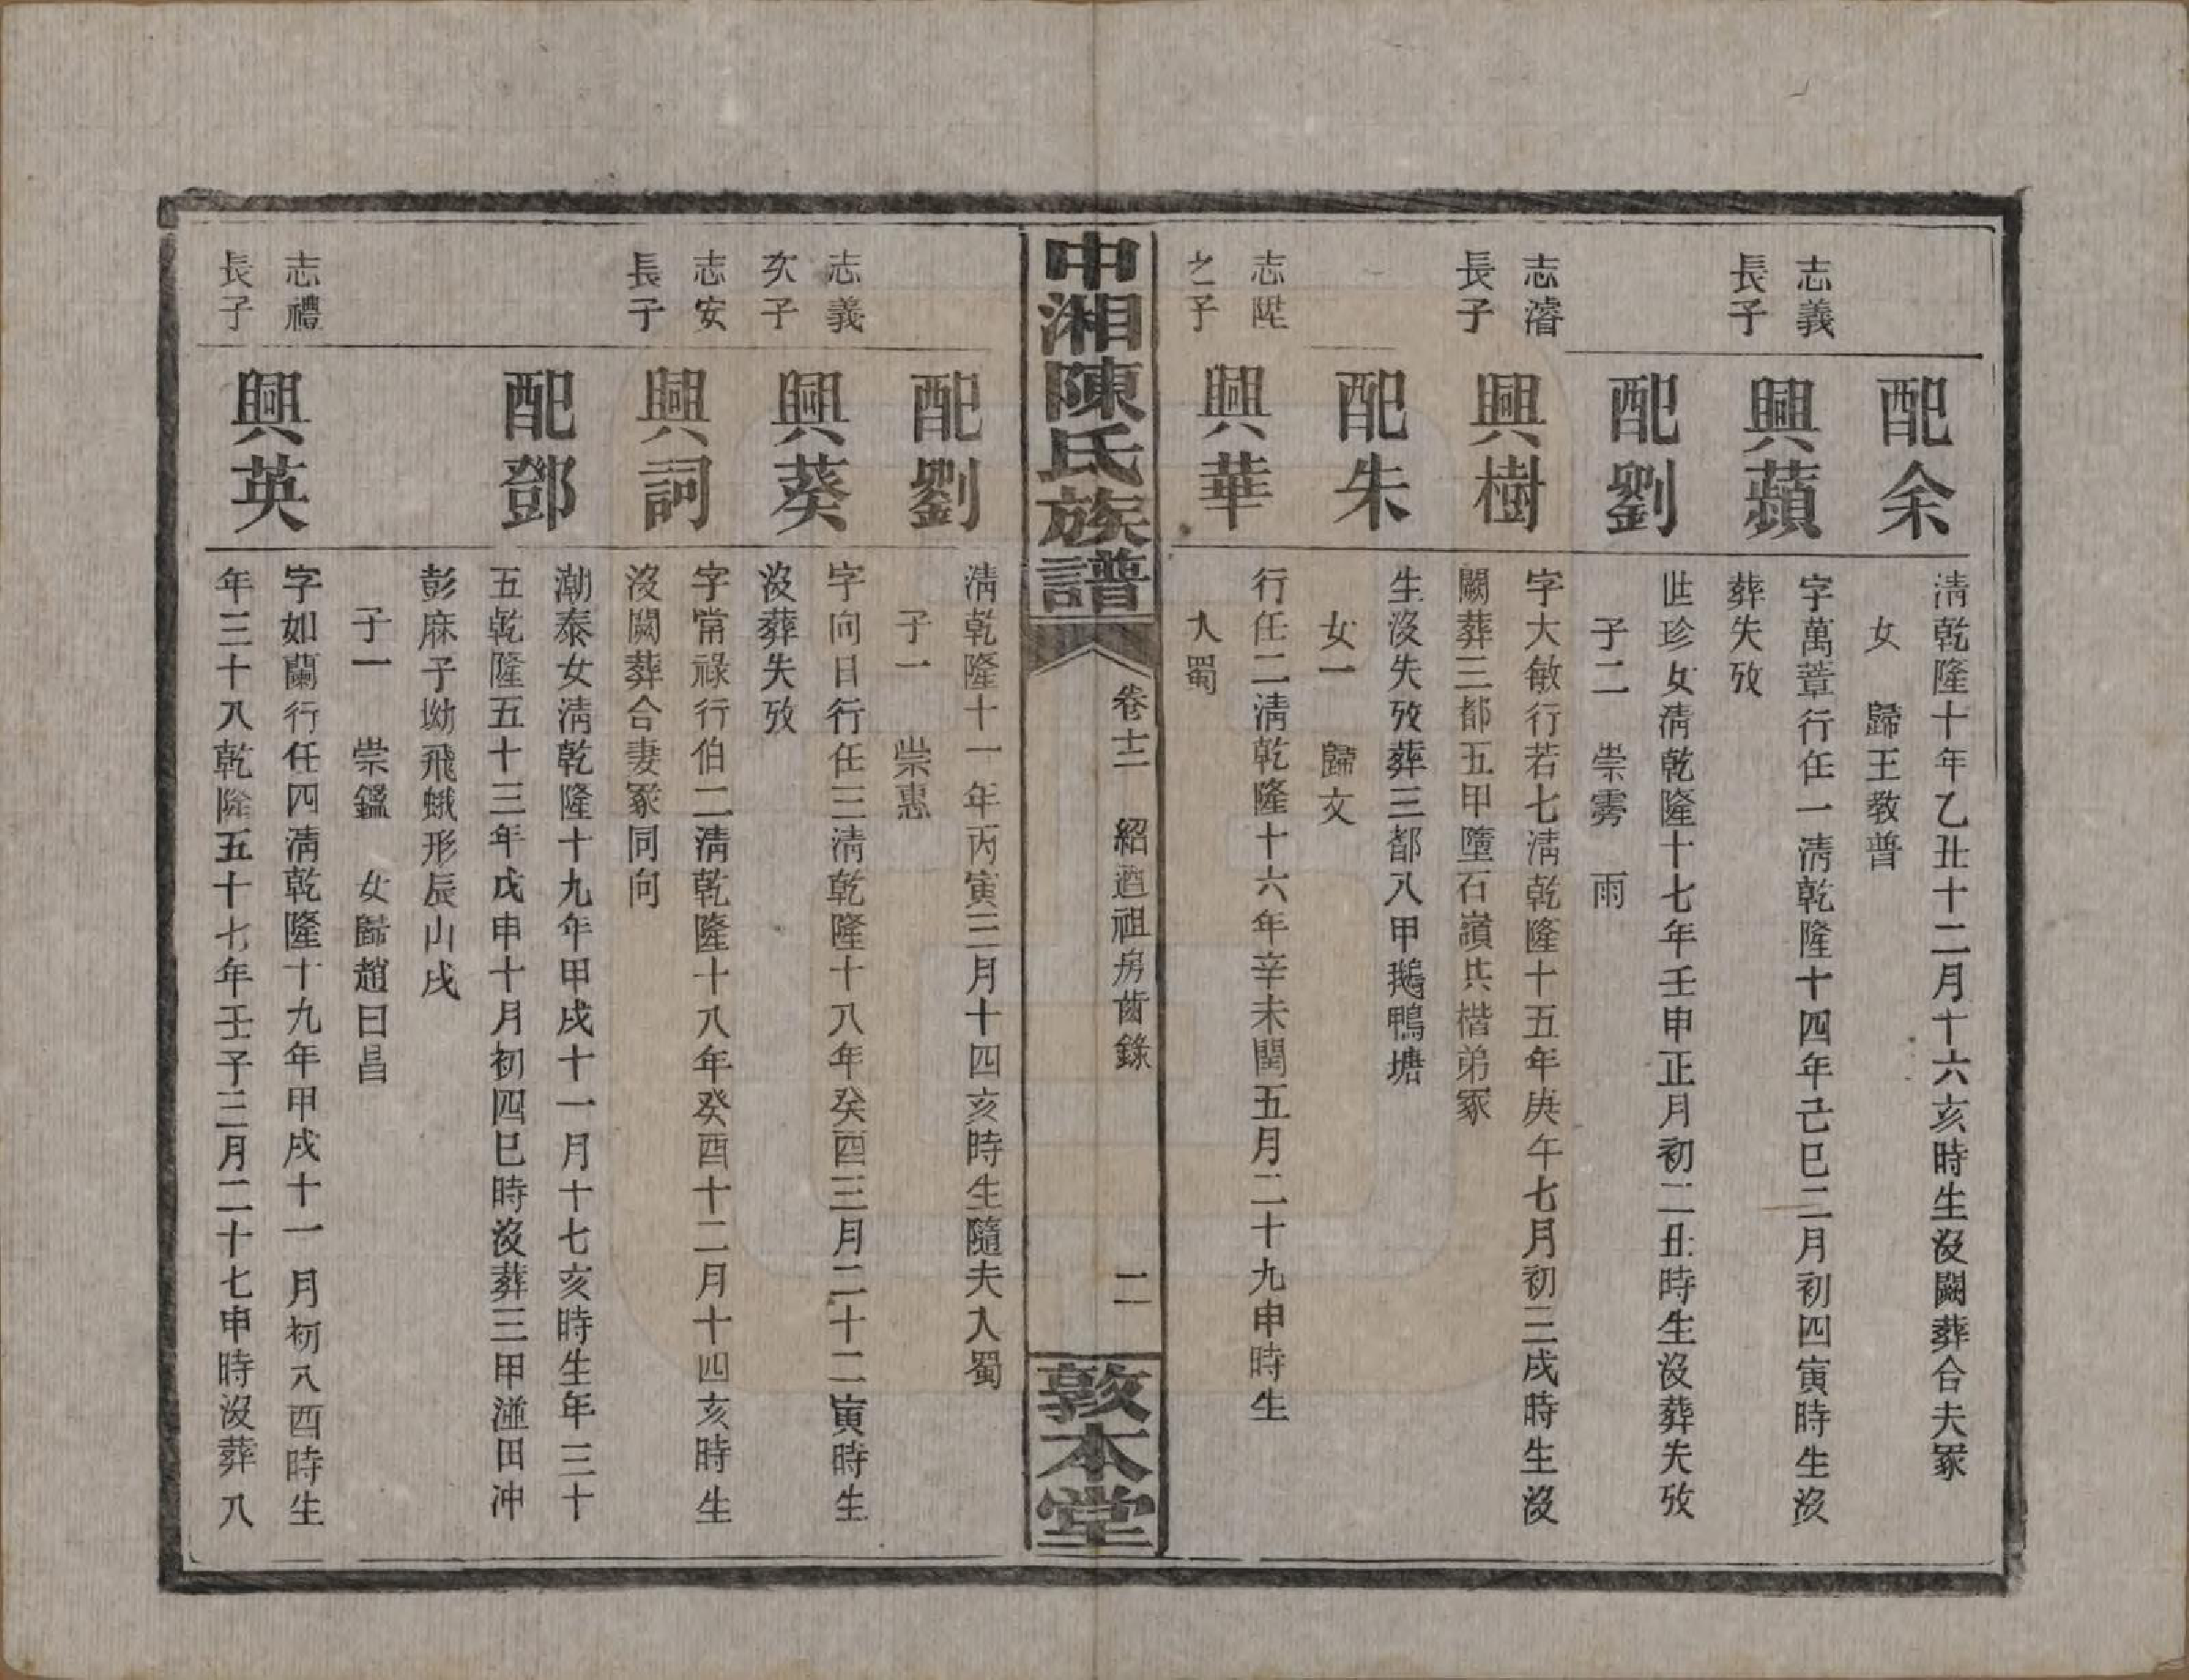 配余
清乾隆十年乙丑十二月十六亥時生沒闕葬合夫冢
女　歸王教普
志義
長子
興蘋
字萬薲行任一清乾隆十四年己巳二月初四寅時生沒
葬失攷
配劉
世珍女清乾隆十七年壬申正月初二丑時生沒葬失攷
子二　崇雱　雨
志濬
長子
興樹
字大敏行若七清乾隆十五年庚午七月初三戌時生沒
闕葬三都五甲墮石嶺共楷弟冢
配朱
生沒失攷葬三都八甲鵝鴨塘
女一　歸文
志陞
之子
興華
行任二清乾隆十六年辛未閏五月二十九申時生
入蜀
中湘陳氏族譜
卷十二　紹遒祖房齒錄
二
敦本堂
配劉
清乾隆十一年丙寅三月十四亥時生隨夫入蜀
子一　崇惠
志義
次子
興葵
字向日行任三清乾隆十八年癸酉三月二十二寅時生
沒葬失攷
志安
長子
興詞
字常祿行伯二清乾隆十八年癸酉十二月十四亥時生
沒闕葬合妻冢同向
配鄧
潮泰女清乾隆十九年甲戌十一月十七亥時生年三十
五乾隆五十三年戊申十月初四巳時沒葬三甲湴田冲
彭麻子坳飛蛾形辰山戌
子一　崇鑑　女歸趙日昌
志禮
長子
興英
字如蘭行任四清乾隆十九年甲戌十一月初八酉時生
年三十八乾隆五十七年壬子三月二十七申時沒葬八